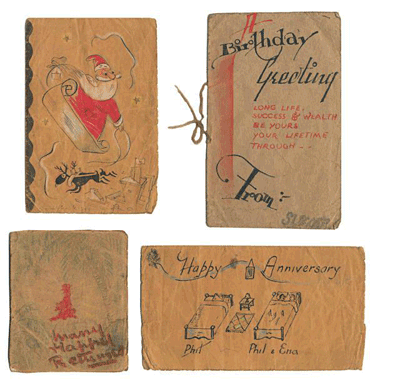 A
Birthday
Greeting
LONG LIFE,
SUCCESS & WEALTH
BE YOURS
YOUR LIFETIME
THROUGH -..
From:-
Many
Happy
Returns
Happy Anniversary
Phil Phil & Ena